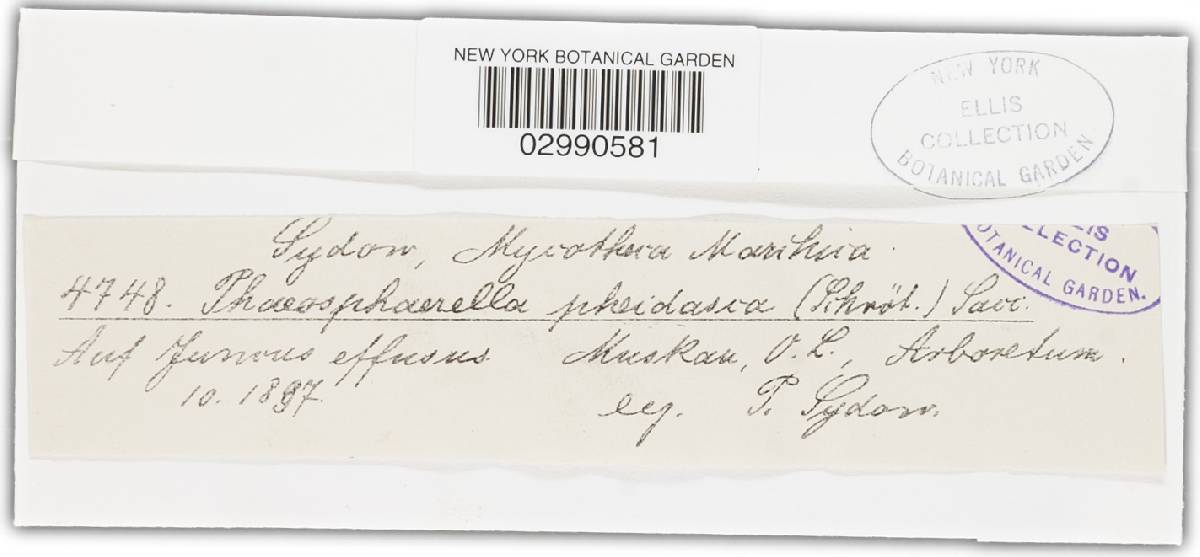 NEW YORK BOTANICAL GARDEN
02990581
NEW YORK
ELLIS
COLLECTION
BOTANICAL GARDEN
Sydow, Mycotheca Marchica.
4748. Phaeosphaerella pheidasca (Schröt.) Sacc.
Auf Juncus effusus Muskau, O. L., Arboretum.
10. 1897.
leg. P. Sydow.
ELLIS
COLLECTION
BOTANICAL GARDEN.